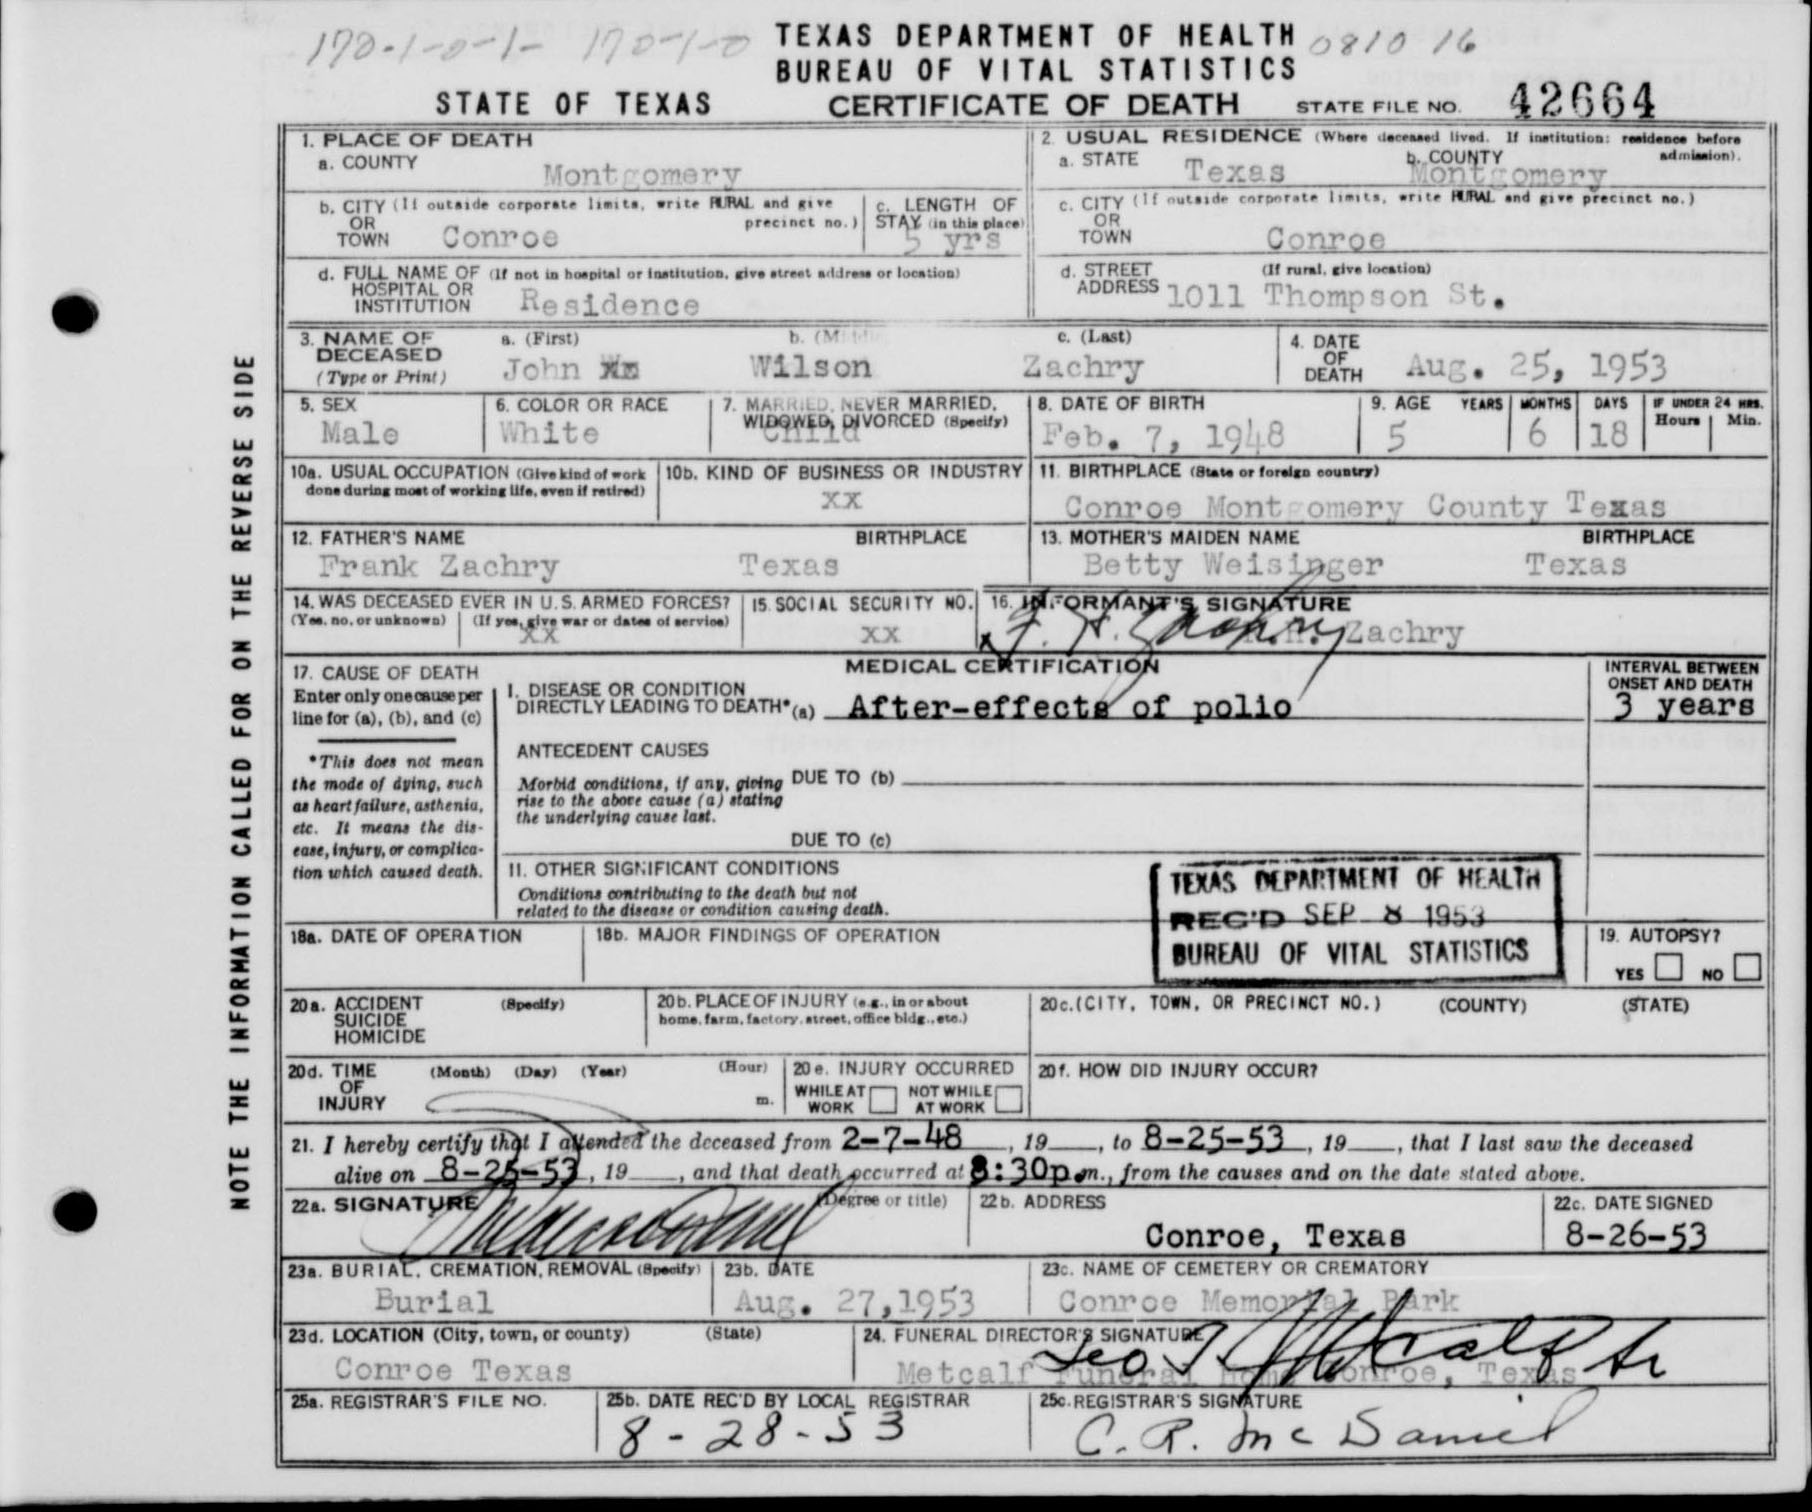 170-1-0-1- 170-1-0 TEXAS DEPARTMENT OF HEALTH 0810 16
BUREAU OF VITAL STATISTICS
STATE OF TEXAS CERTIFICATE OF DEATH STATE FILE NO. 42664
NOTE THE INFORMATION CALLED FOR ON THE REVERSE SIDE
1. PLACE OF DEATH
a. COUNTY
Montgomery
2. USUAL RESIDENCE (Where deceased lived. If institution: residence before admission).
a. STATE Texas b. COUNTY Montgomery
b. CITY (If outside corporate limits, write RURAL and give precinct no.)
OR
TOWN Conroe
c. LENGTH OF
STAY (in this place)
5 yrs
c. CITY (If outside corporate limits, write RURAL and give precinct no.)
OR
TOWN Conroe
d. FULL NAME OF (If not in hospital or institution, give street address or location)
HOSPITAL OR
INSTITUTION Residence
d. STREET (If rural, give location)
ADDRESS 1011 Thompson St.
3. NAME OF a. (First) b. (Middle) c. (Last)
DECEASED
(Type or Print) John Wilson Zachry
4. DATE
OF
DEATH Aug. 25, 1953
5. SEX
Male
6. COLOR OR RACE
White
7. MARRIED, NEVER MARRIED,
WIDOWED, DIVORCED (Specify)
Child
8. DATE OF BIRTH
Feb. 7, 1948
9. AGE YEARS MONTHS DAYS IF UNDER 24 HRS.
Hours Min.
5 6 18
10a. USUAL OCCUPATION (Give kind of work
done during most of working life, even if retired)
10b. KIND OF BUSINESS OR INDUSTRY
xx
11. BIRTHPLACE (State or foreign country)
Conroe Montgomery County Texas
12. FATHER'S NAME BIRTHPLACE
Frank Zachry Texas
13. MOTHER'S MAIDEN NAME BIRTHPLACE
Betty Weisinger Texas
14. WAS DECEASED EVER IN U.S. ARMED FORCES?
(Yes, no, or unknown) (If yes, give war or dates of service)
xx
15. SOCIAL SECURITY NO.
xx
16. INFORMANT'S SIGNATURE
F. H. Zachry
Zachry
17. CAUSE OF DEATH
Enter only one cause per
line for (a), (b), and (c)
*This does not mean
the mode of dying, such
as heart failure, asthenia,
etc. It means the dis-
ease, injury, or complica-
tion which caused death.
MEDICAL CERTIFICATION
I. DISEASE OR CONDITION
DIRECTLY LEADING TO DEATH* (a) After-effects of polio
ANTECEDENT CAUSES
Morbid conditions, if any, giving DUE TO (b)
rise to the above cause (a) stating
the underlying cause last.
DUE TO (c)
II. OTHER SIGNIFICANT CONDITIONS
Conditions contributing to the death but not
related to the disease or condition causing death.
INTERVAL BETWEEN
ONSET AND DEATH
3 years
TEXAS DEPARTMENT OF HEALTH
REC'D SEP 8 1953
BUREAU OF VITAL STATISTICS
18a. DATE OF OPERATION
18b. MAJOR FINDINGS OF OPERATION
19. AUTOPSY?
YES NO
20a. ACCIDENT (Specify)
SUICIDE
HOMICIDE
20b. PLACE OF INJURY (e.g., in or about
home, farm, factory, street, office bldg., etc.)
20c. (CITY, TOWN, OR PRECINCT NO.) (COUNTY) (STATE)
20d. TIME (Month) (Day) (Year) (Hour)
OF
INJURY m.
20e. INJURY OCCURRED
WHILE AT NOT WHILE
WORK AT WORK
20f. HOW DID INJURY OCCUR?
21. I hereby certify that I attended the deceased from 2-7-48, 19, to 8-25-53, 19, that I last saw the deceased
alive on 8-25-53, 19, and that death occurred at 8:30p.m., from the causes and on the date stated above.
22a. SIGNATURE (Degree or title)
22b. ADDRESS
Conroe, Texas
22c. DATE SIGNED
8-26-53
23a. BURIAL, CREMATION, REMOVAL (Specify)
Burial
23b. DATE
Aug. 27,1953
23c. NAME OF CEMETERY OR CREMATORY
Conroe Memorial Park
23d. LOCATION (City, town, or county) (State)
Conroe Texas
24. FUNERAL DIRECTOR'S SIGNATURE
Leo T. Metcalf Sr
Metcalf Funeral Home Conroe, Texas
25a. REGISTRAR'S FILE NO.
25b. DATE REC'D BY LOCAL REGISTRAR
8-28-53
25c. REGISTRAR'S SIGNATURE
C. R. McDaniel